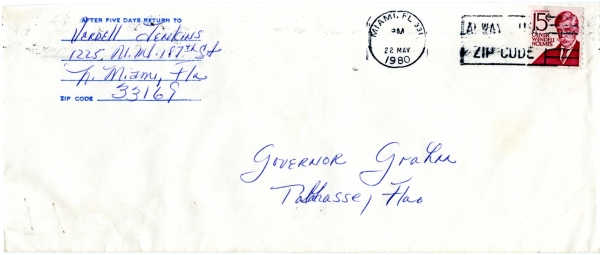 AFTER FIVE DAYS RETURN TO
Vardell Jenkins
1225 N.W. 187th St
N. Miami, Fla
ZIP CODE 33169
MIAMI, FL 331
PM
22 MAY
1980
ZIP CODE
15c
OLIVER
WENDELL
HOLMES
Governor Graham
Tallahassee, Flao